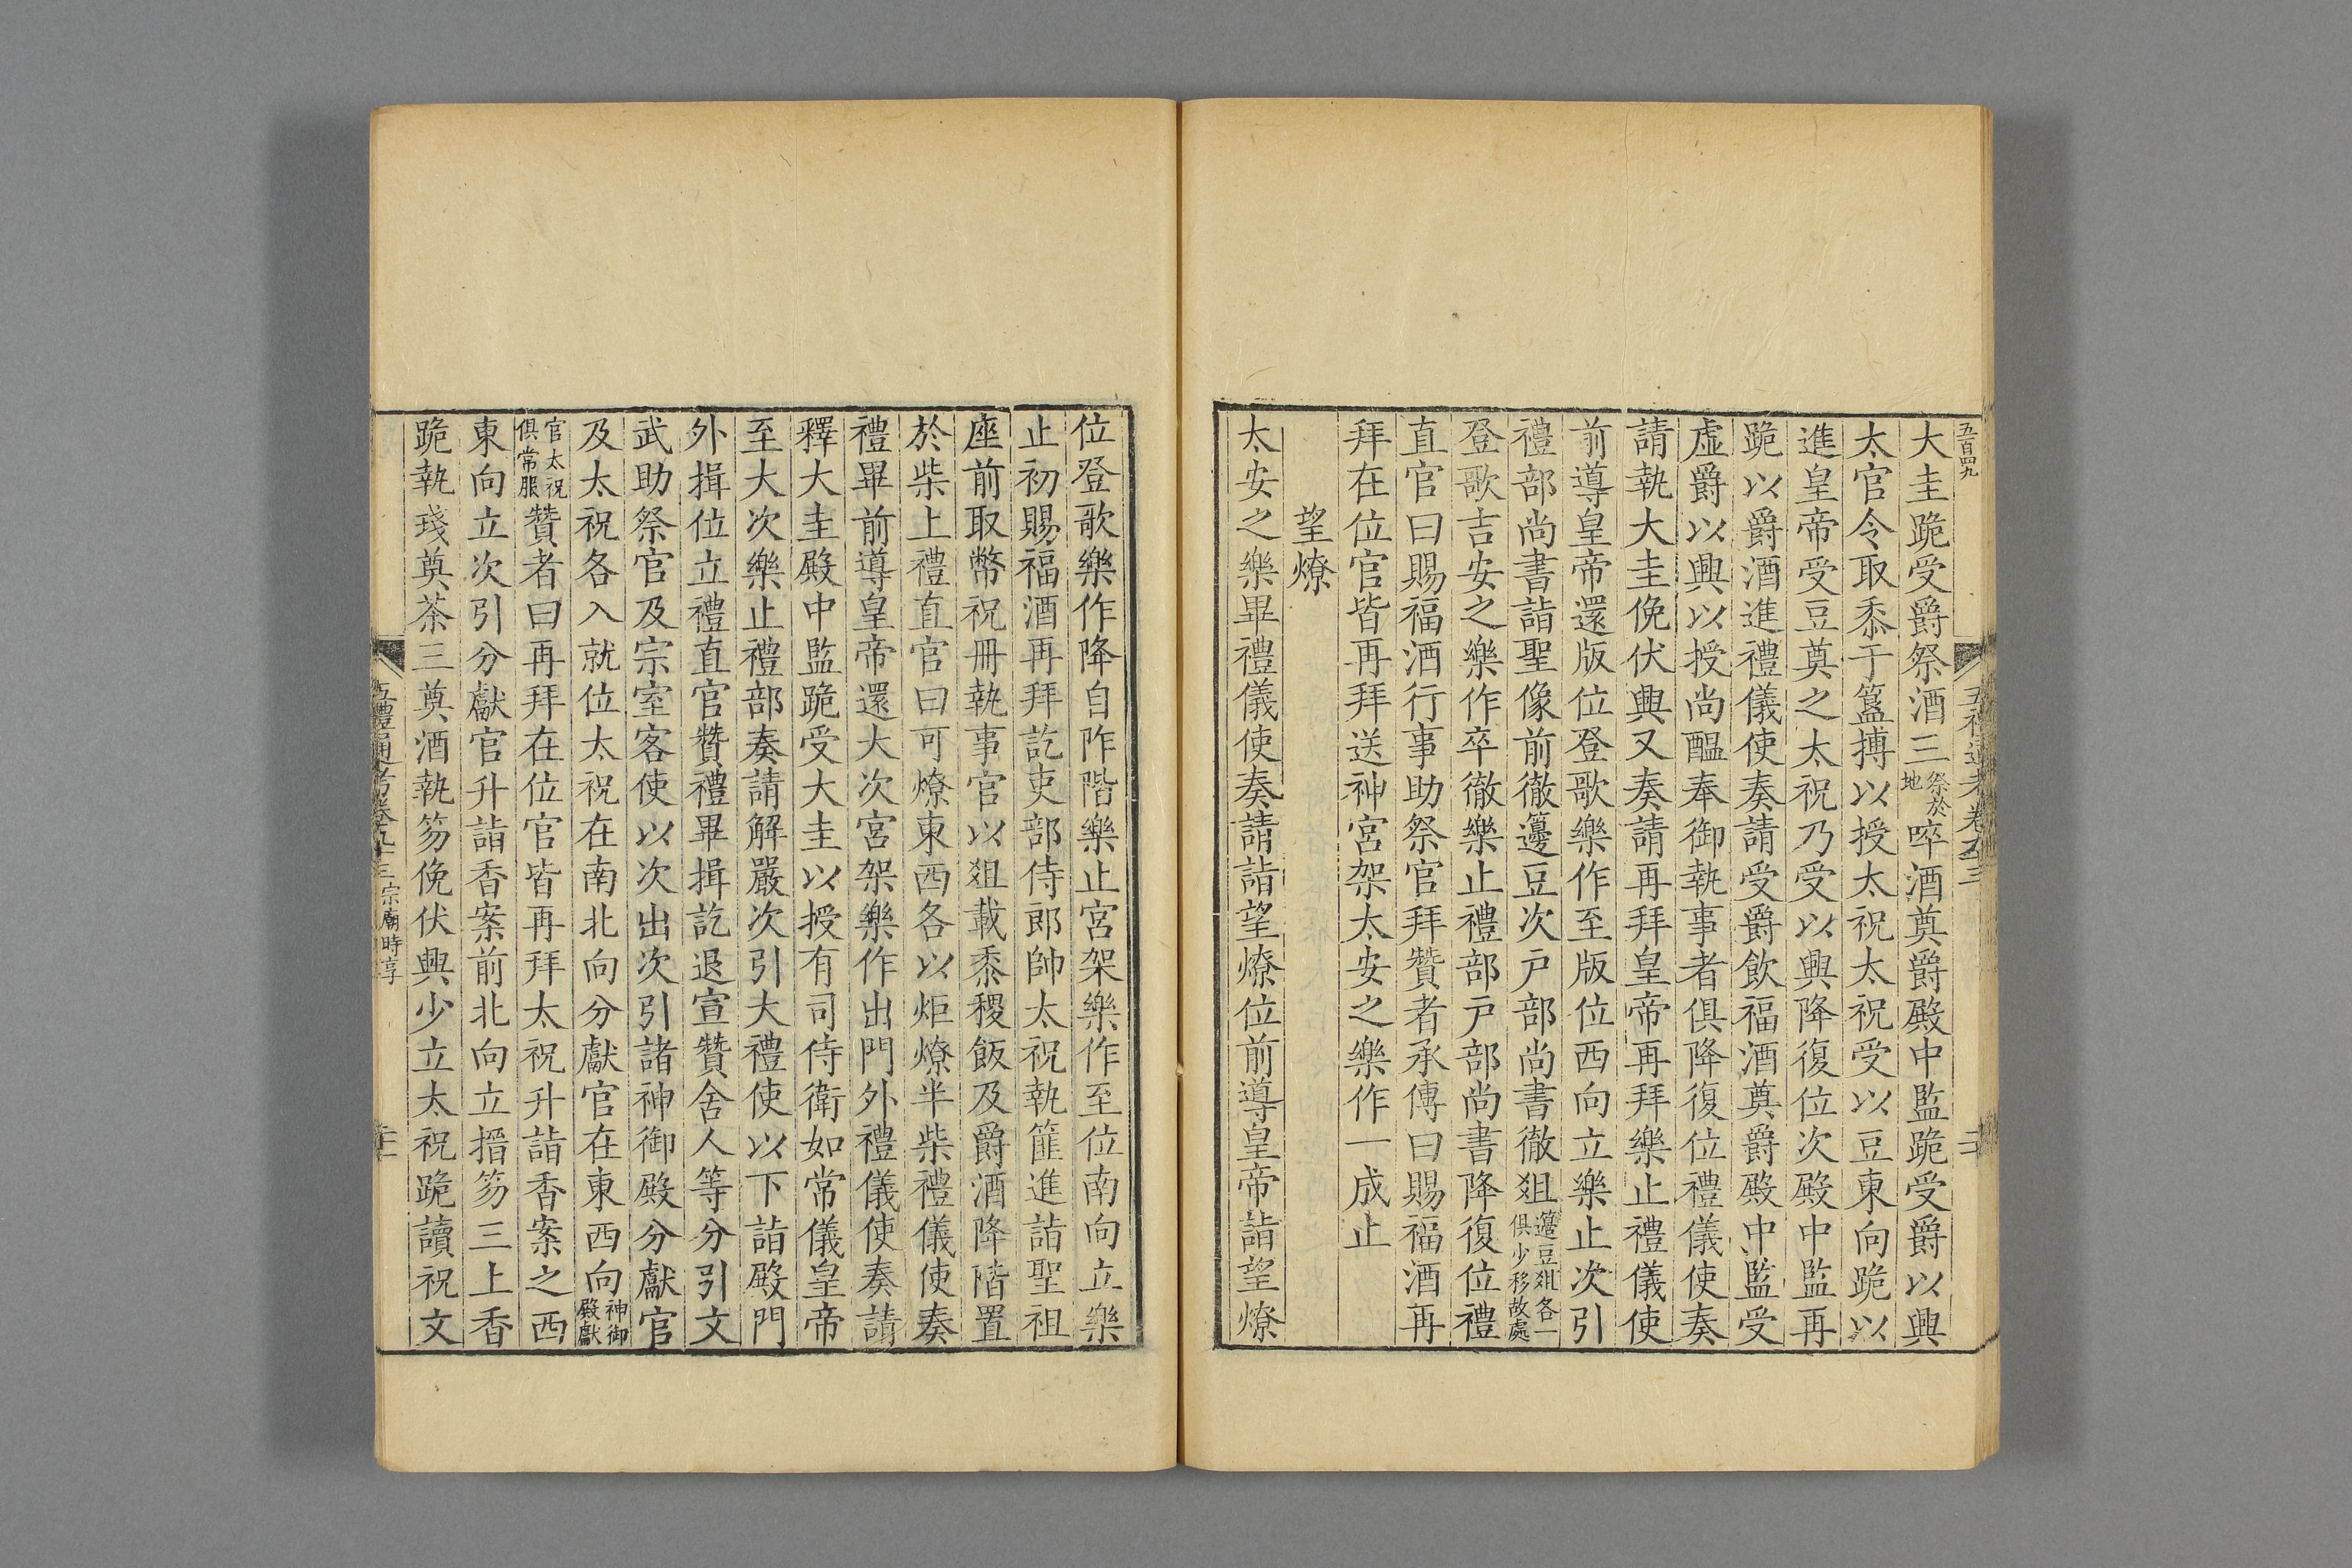 五百四九
五禮通考卷九十三
大圭跪受爵祭酒三祭於地啐酒奠爵殿中監跪受爵以興
太官令取黍于簋摶以授太祝太祝受以豆東向跪以
進皇帝受豆奠之太祝乃受以興降復位次殿中監再
跪以爵酒進禮儀使奏請受爵飲福酒奠爵殿中監受
虛爵以興以授尚醞奉御執事者俱降復位禮儀使奏
請執大圭俛伏興又奏請再拜皇帝再拜樂止禮儀使
前導皇帝還版位登歌樂作至版位西向立樂止次引
禮部尚書詣聖像前徹籩豆次戸部尚書徹俎籩豆俎各一俱少移故處
登歌吉安之樂作卒徹樂止禮部戸部尚書降復位禮
直官曰賜福酒行事助祭官拜贊者承傳曰賜福酒再
拜在位官皆再拜送神宮架太安之樂作一成止
望燎
太安之樂畢禮儀使奏請詣望燎位前導皇帝詣望燎
位登歌樂作降自阼階樂止宮架樂作至位南向立樂
止初賜福酒再拜訖吏部侍郎帥太祝執篚進詣聖祖
座前取幣祝冊執事官以俎載黍稷飯及爵酒降階置
於柴上禮直官曰可燎東西各以炬燎半柴禮儀使奏
禮畢前導皇帝還大次宮架樂作出門外禮儀使奏請
釋大圭殿中監跪受大圭以授有司侍衛如常儀皇帝
至大次樂止禮部奏請解嚴次引大禮使以下詣殿門
外揖位立禮直官贊禮畢揖訖退宣贊舍人等分引文
武助祭官及宗室客使以次出次引諸神御殿分獻官
及太祝各入就位太祝在南北向分獻官在東西向神御殿獻
官太祝俱常服贊者曰再拜在位官皆再拜太祝升詣香案之西
東向立次引分獻官升詣香案前北向立搢笏三上香
跪執琖奠茶三奠酒執笏俛伏興少立太祝跪讀祝文
五禮通考卷九十三 宗廟時享